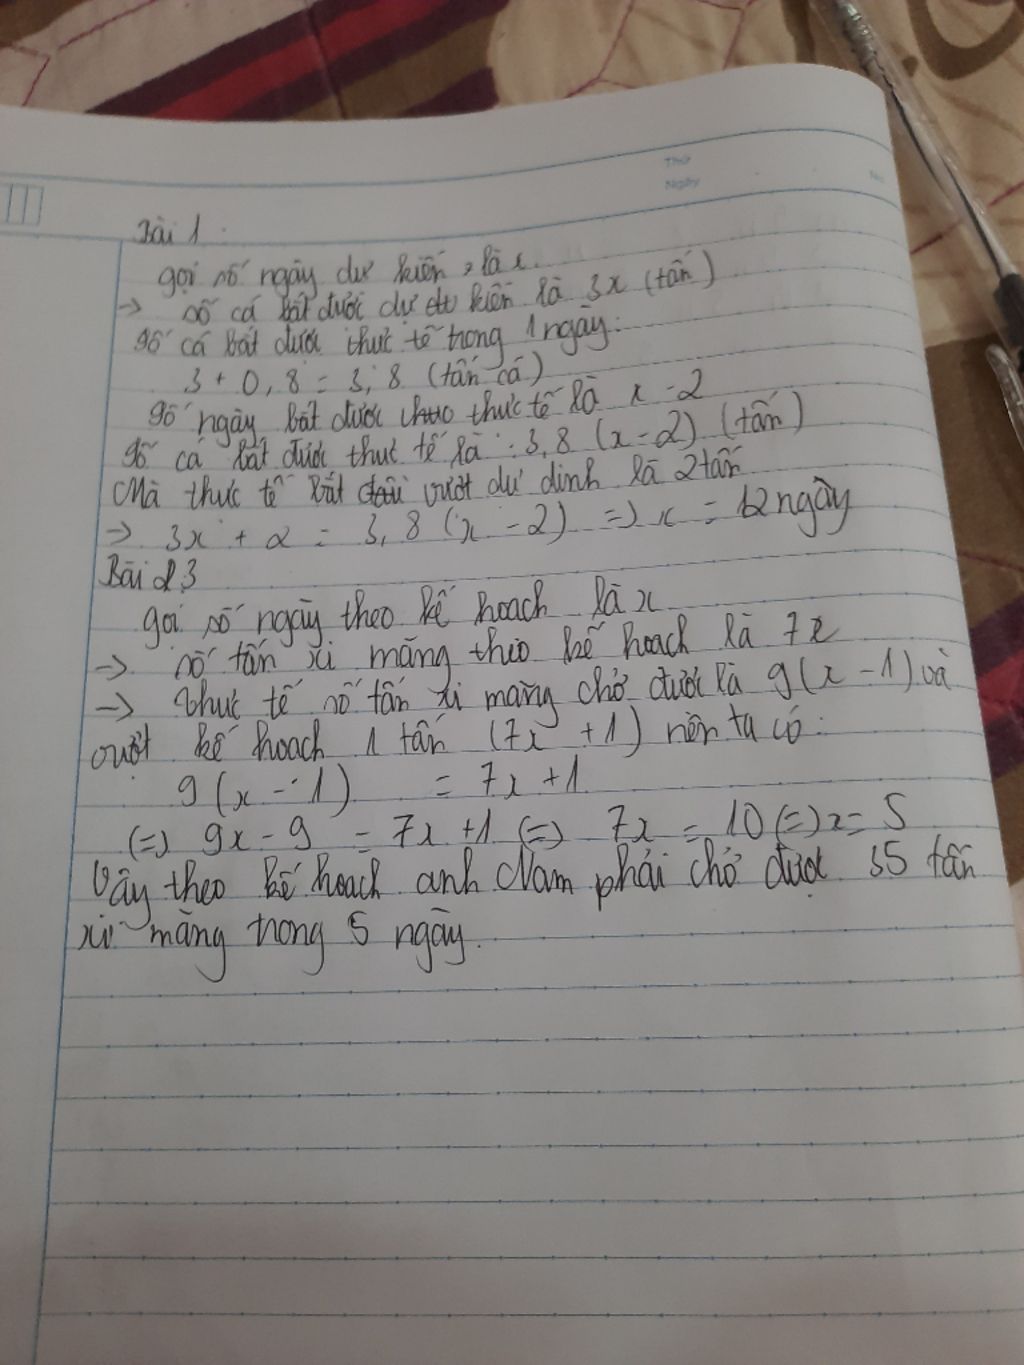 Thứ
Ngày
Bài 1:
gọi số ngày dự kiến là x.
→ số cá bắt được dự kiến là 3x (tấn)
Số cá bắt được thực tế trong 1 ngày:
3 + 0,8 = 3,8 (tấn cá)
Số ngày bắt được thực tế là x - 2
Số cá bắt được thưc tế là : 3,8 (x - 2) (tấn)
Mà thực tế bắt vượt dự dinh là 2 tấn
→ 3x + 2 = 3,8 (x - 2) => x = 12 ngày
Bài 3
gọi số ngày theo kế hoach là x
→ số tấn xi măng theo kế hoach là 7x
→ thực tế số tấn xi măng chở được là 9(x - 1) và
vượt kế hoach 1 tấn (7x + 1) nên ta có:
9(x - 1) = 7x + 1
(=) 9x - 9 = 7x + 1 (=) 7x = 10 (=) x = 5
Vậy theo kế hoach anh Nam phải chở được 35 tấn
xi măng trong 5 ngày.